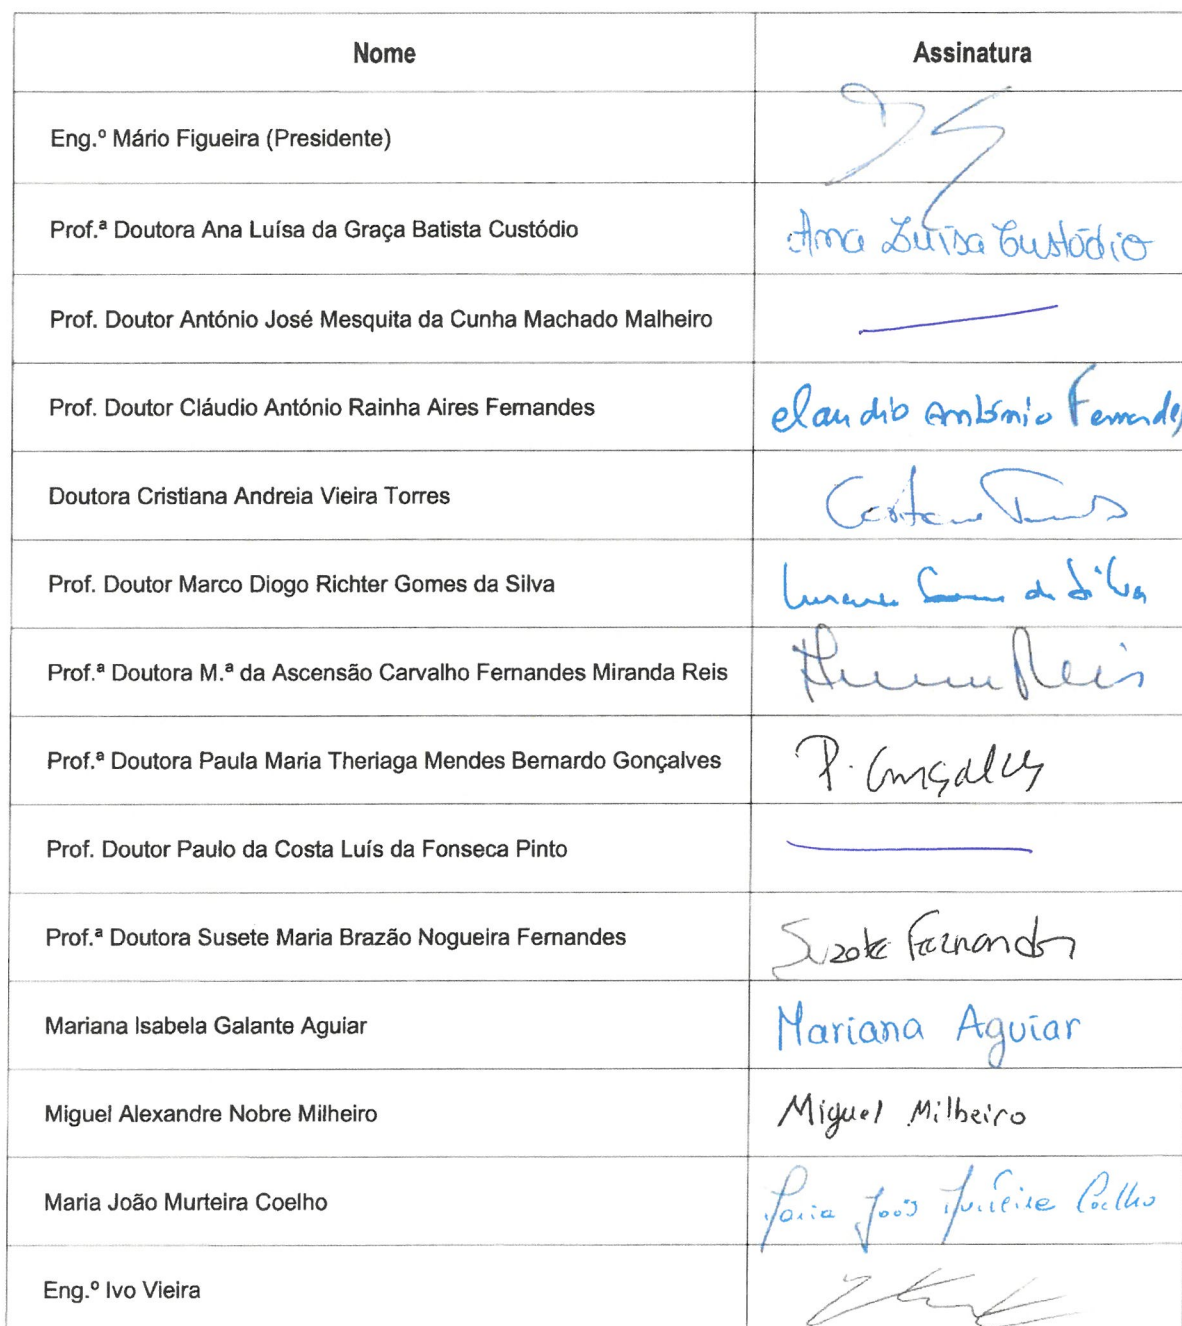 Nome Assinatura
Eng.º Mário Figueira (Presidente)
Prof.ª Doutora Ana Luísa da Graça Batista Custódio Ana Luísa Custódio
Prof. Doutor António José Mesquita da Cunha Machado Malheiro
Prof. Doutor Cláudio António Rainha Aires Fernandes Claudio António Fernandes
Doutora Cristiana Andreia Vieira Torres
Prof. Doutor Marco Diogo Richter Gomes da Silva da Silva
Prof.ª Doutora M.ª da Ascensão Carvalho Fernandes Miranda Reis Reis
Prof.ª Doutora Paula Maria Theriaga Mendes Bernardo Gonçalves P. Gonçalves
Prof. Doutor Paulo da Costa Luís da Fonseca Pinto
Prof.ª Doutora Susete Maria Brazão Nogueira Fernandes Suzete Fernandes
Mariana Isabela Galante Aguiar Mariana Aguiar
Miguel Alexandre Nobre Milheiro Miguel Milheiro
Maria João Murteira Coelho Maria João Murteira Coelho
Eng.º Ivo Vieira